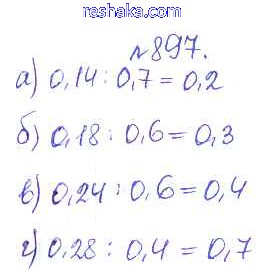 reshaka.com
№897.
а) 0,14 : 0,7 = 0,2
б) 0,18 : 0,6 = 0,3
в) 0,24 : 0,6 = 0,4
г) 0,28 : 0,4 = 0,7